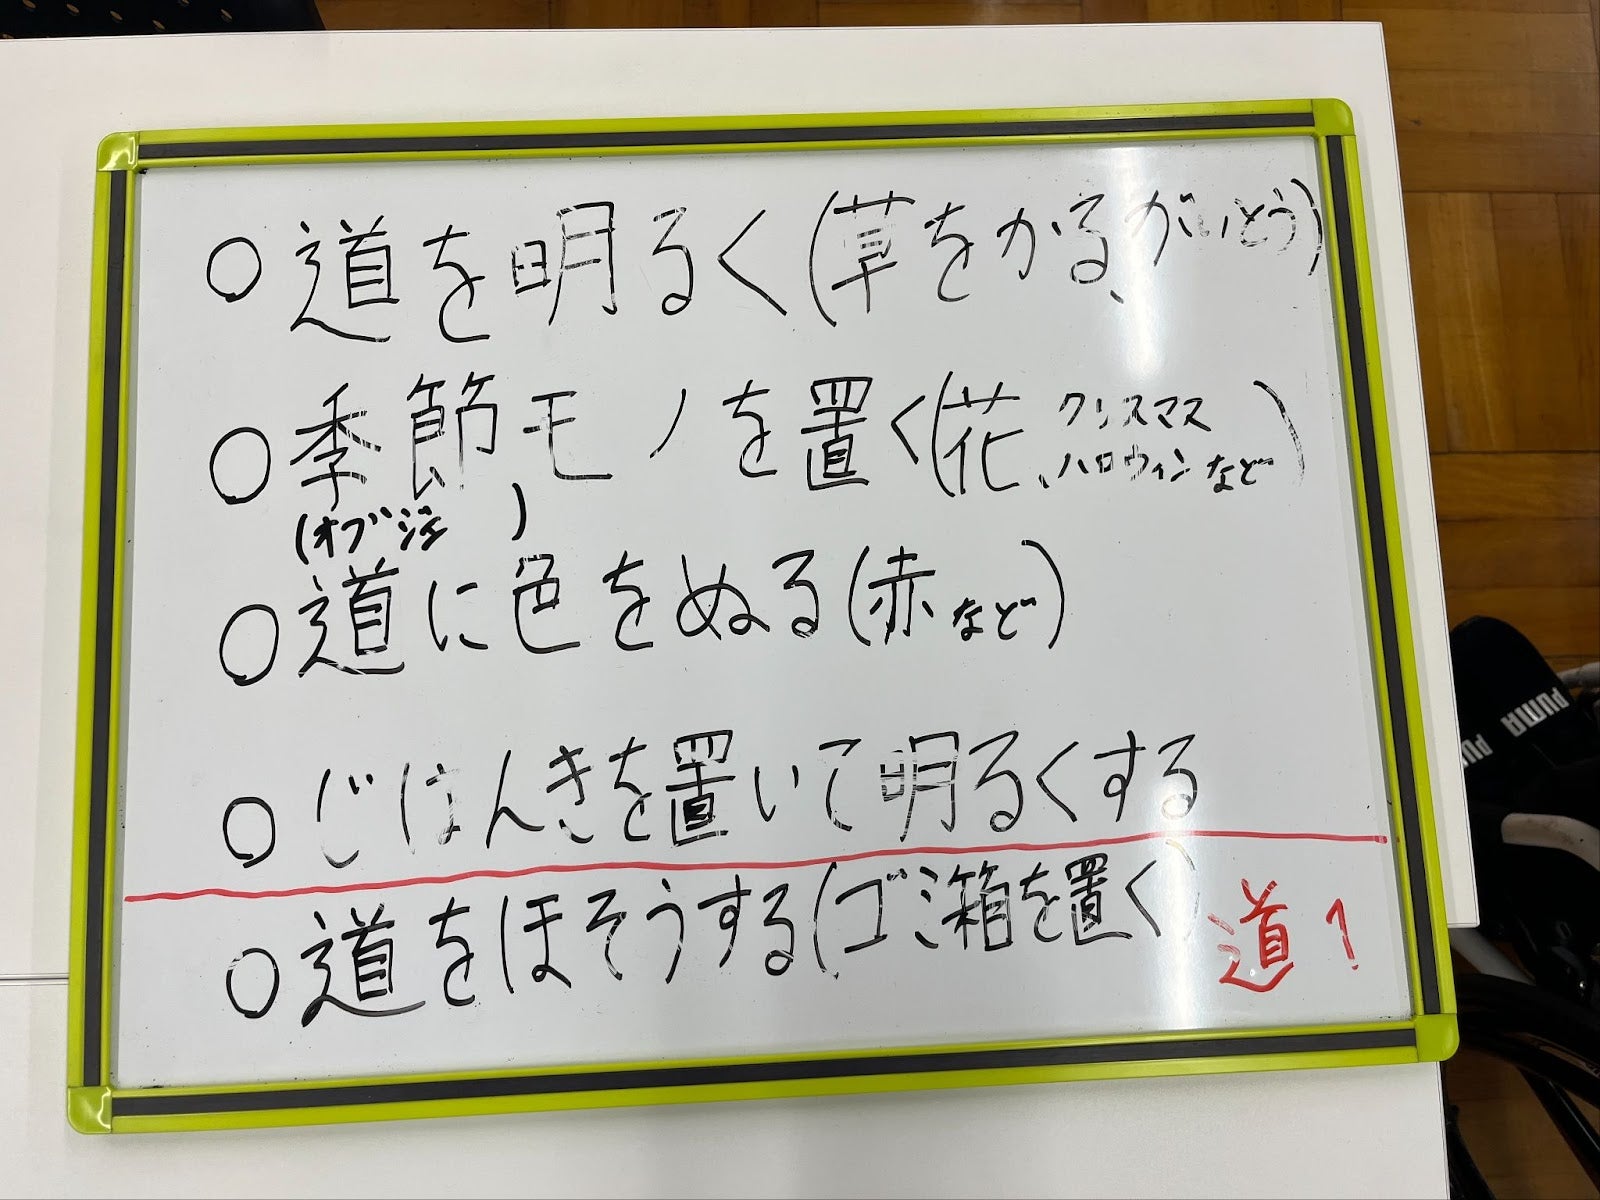 ○道を明るく(草をかる、がいとう)
○季節モノを置く(花、クリスマス
ハロウィンなど)
(オブジェ )
○道に色をぬる(赤など)
○じはんきを置いて明るくする
○道をほそうする(ゴミ箱を置く)
道1
PUMA
PU